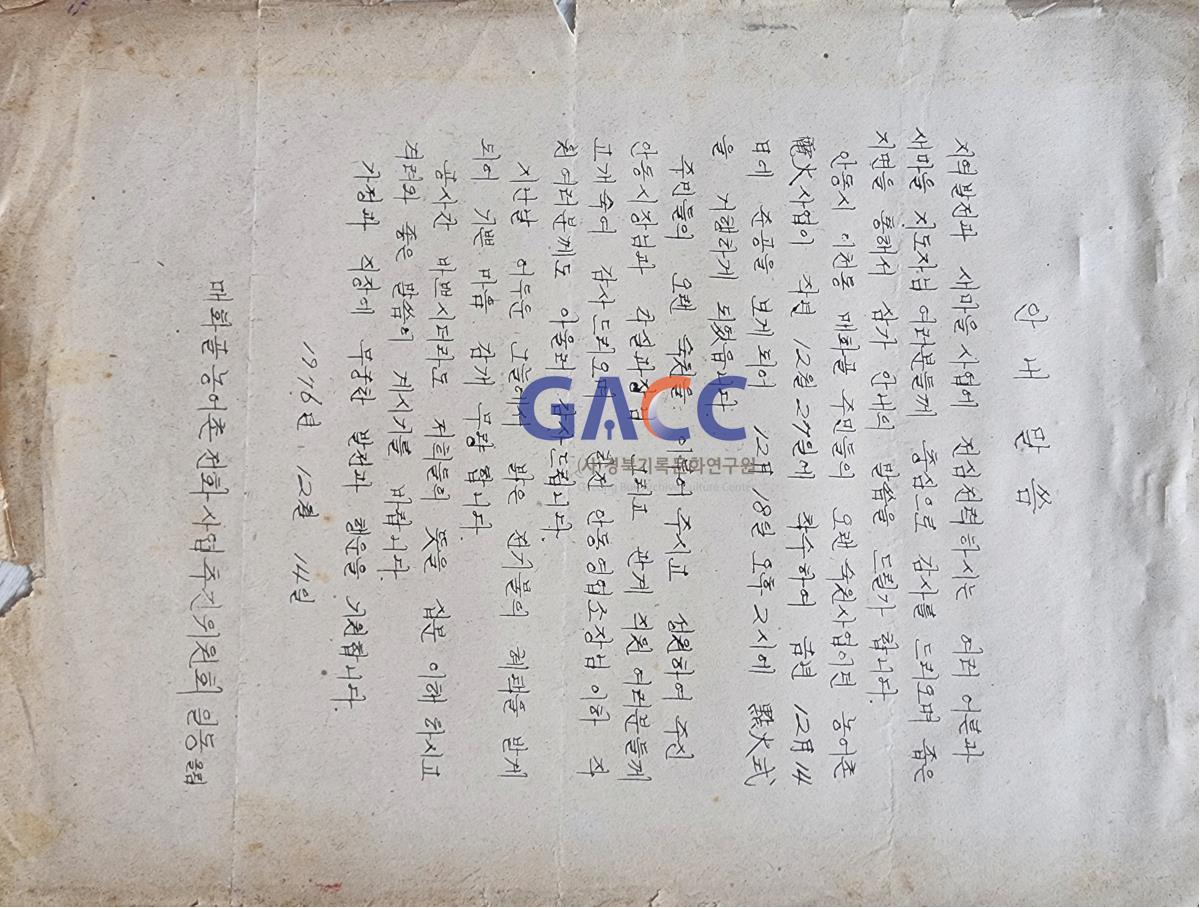 안내말씀
지역발전과 새마을사업에 전심전력하시는 여러 어분과
새마을 지도자님 여러분들께 충심으로 감사를 드리오며 좁은
지면을 통해서 삼가 안내의 말씀을 드릴가 합니다.
안동시 이천동 매화골 주민들의 오랜 숙원사업이던 농어촌
電火사업이 작년 12월 27일에 착수하여 금년 12月 14
日에 준공을 보게되어 12月 18일 오후 2시에 點火式
을 거행하게 되었읍니다
주민들의 오랜 숙원을 이루어 주시고 성원하여 주신
안동시장님과 건설과장님 그리고 관계 직원 여러분들께
고개숙여 감사드리오며 한전 안동영업소장님 이하 직
원 여러분께도 아울러 감사드립니다.
지난날 어두운 그늘에서 밝은 전기불의 혜택을 받게
되어 기쁜 마음 감개 무량 합니다.
공사간 바쁘시더라도 저희들의 뜻을 십분 이해 하시고
격려와 좋은 말씀이 계시기를 바랍니다.
가정과 직장에 무궁한 발전과 행운을 기원합니다.
1976년 12월 14일
매화골 농어촌 전화사업 추진위원회 일동 올림
GACC
(사)경북기록문화연구원